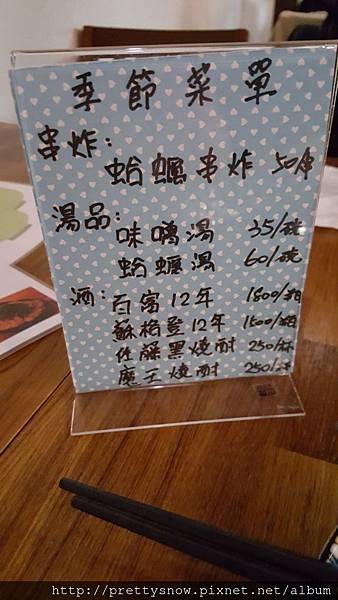 季節菜單
串炸:
蛤蠣串炸 50/串
湯品:
味噌湯 35/碗
蛤蠣湯 60/碗
酒: 百富12年 1800/瓶
蘇格登12年 1500/瓶
佐藤黑燒酎 250/杯
魔王燒酎 250/杯
http://prettysnow.pixnet.net/album